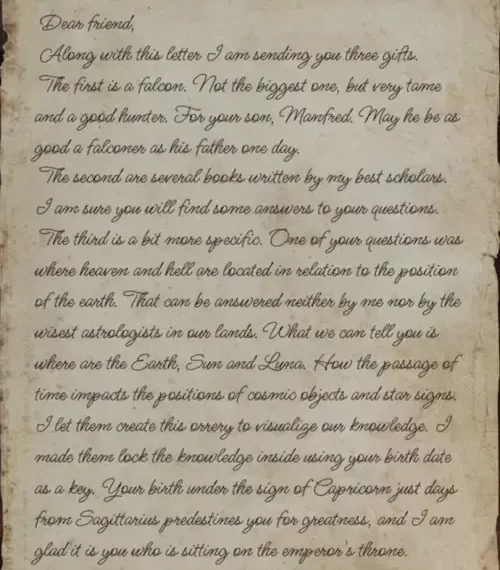 Dear friend,
Along with this letter I am sending you three gifts.
The first is a falcon. Not the biggest one, but very tame
and a good hunter. For your son, Manfred. May he be as
good a falconer as his father one day.
The second are several books written by my best scholars.
I am sure you will find some answers to your questions.
The third is a bit more specific. One of your questions was
where heaven and hell are located in relation to the position
of the earth. That can be answered neither by me nor by the
wisest astrologists in our lands. What we can tell you is
where are the Earth, Sun and Luna. How the passage of
time impacts the positions of cosmic objects and star signs.
I let them create this orrery to visualize our knowledge. I
made them lock the knowledge inside using your birth date
as a key. Your birth under the sign of Capricorn just days
from Sagittarius predestines you for greatness, and I am
glad it is you who is sitting on the emperor's throne.